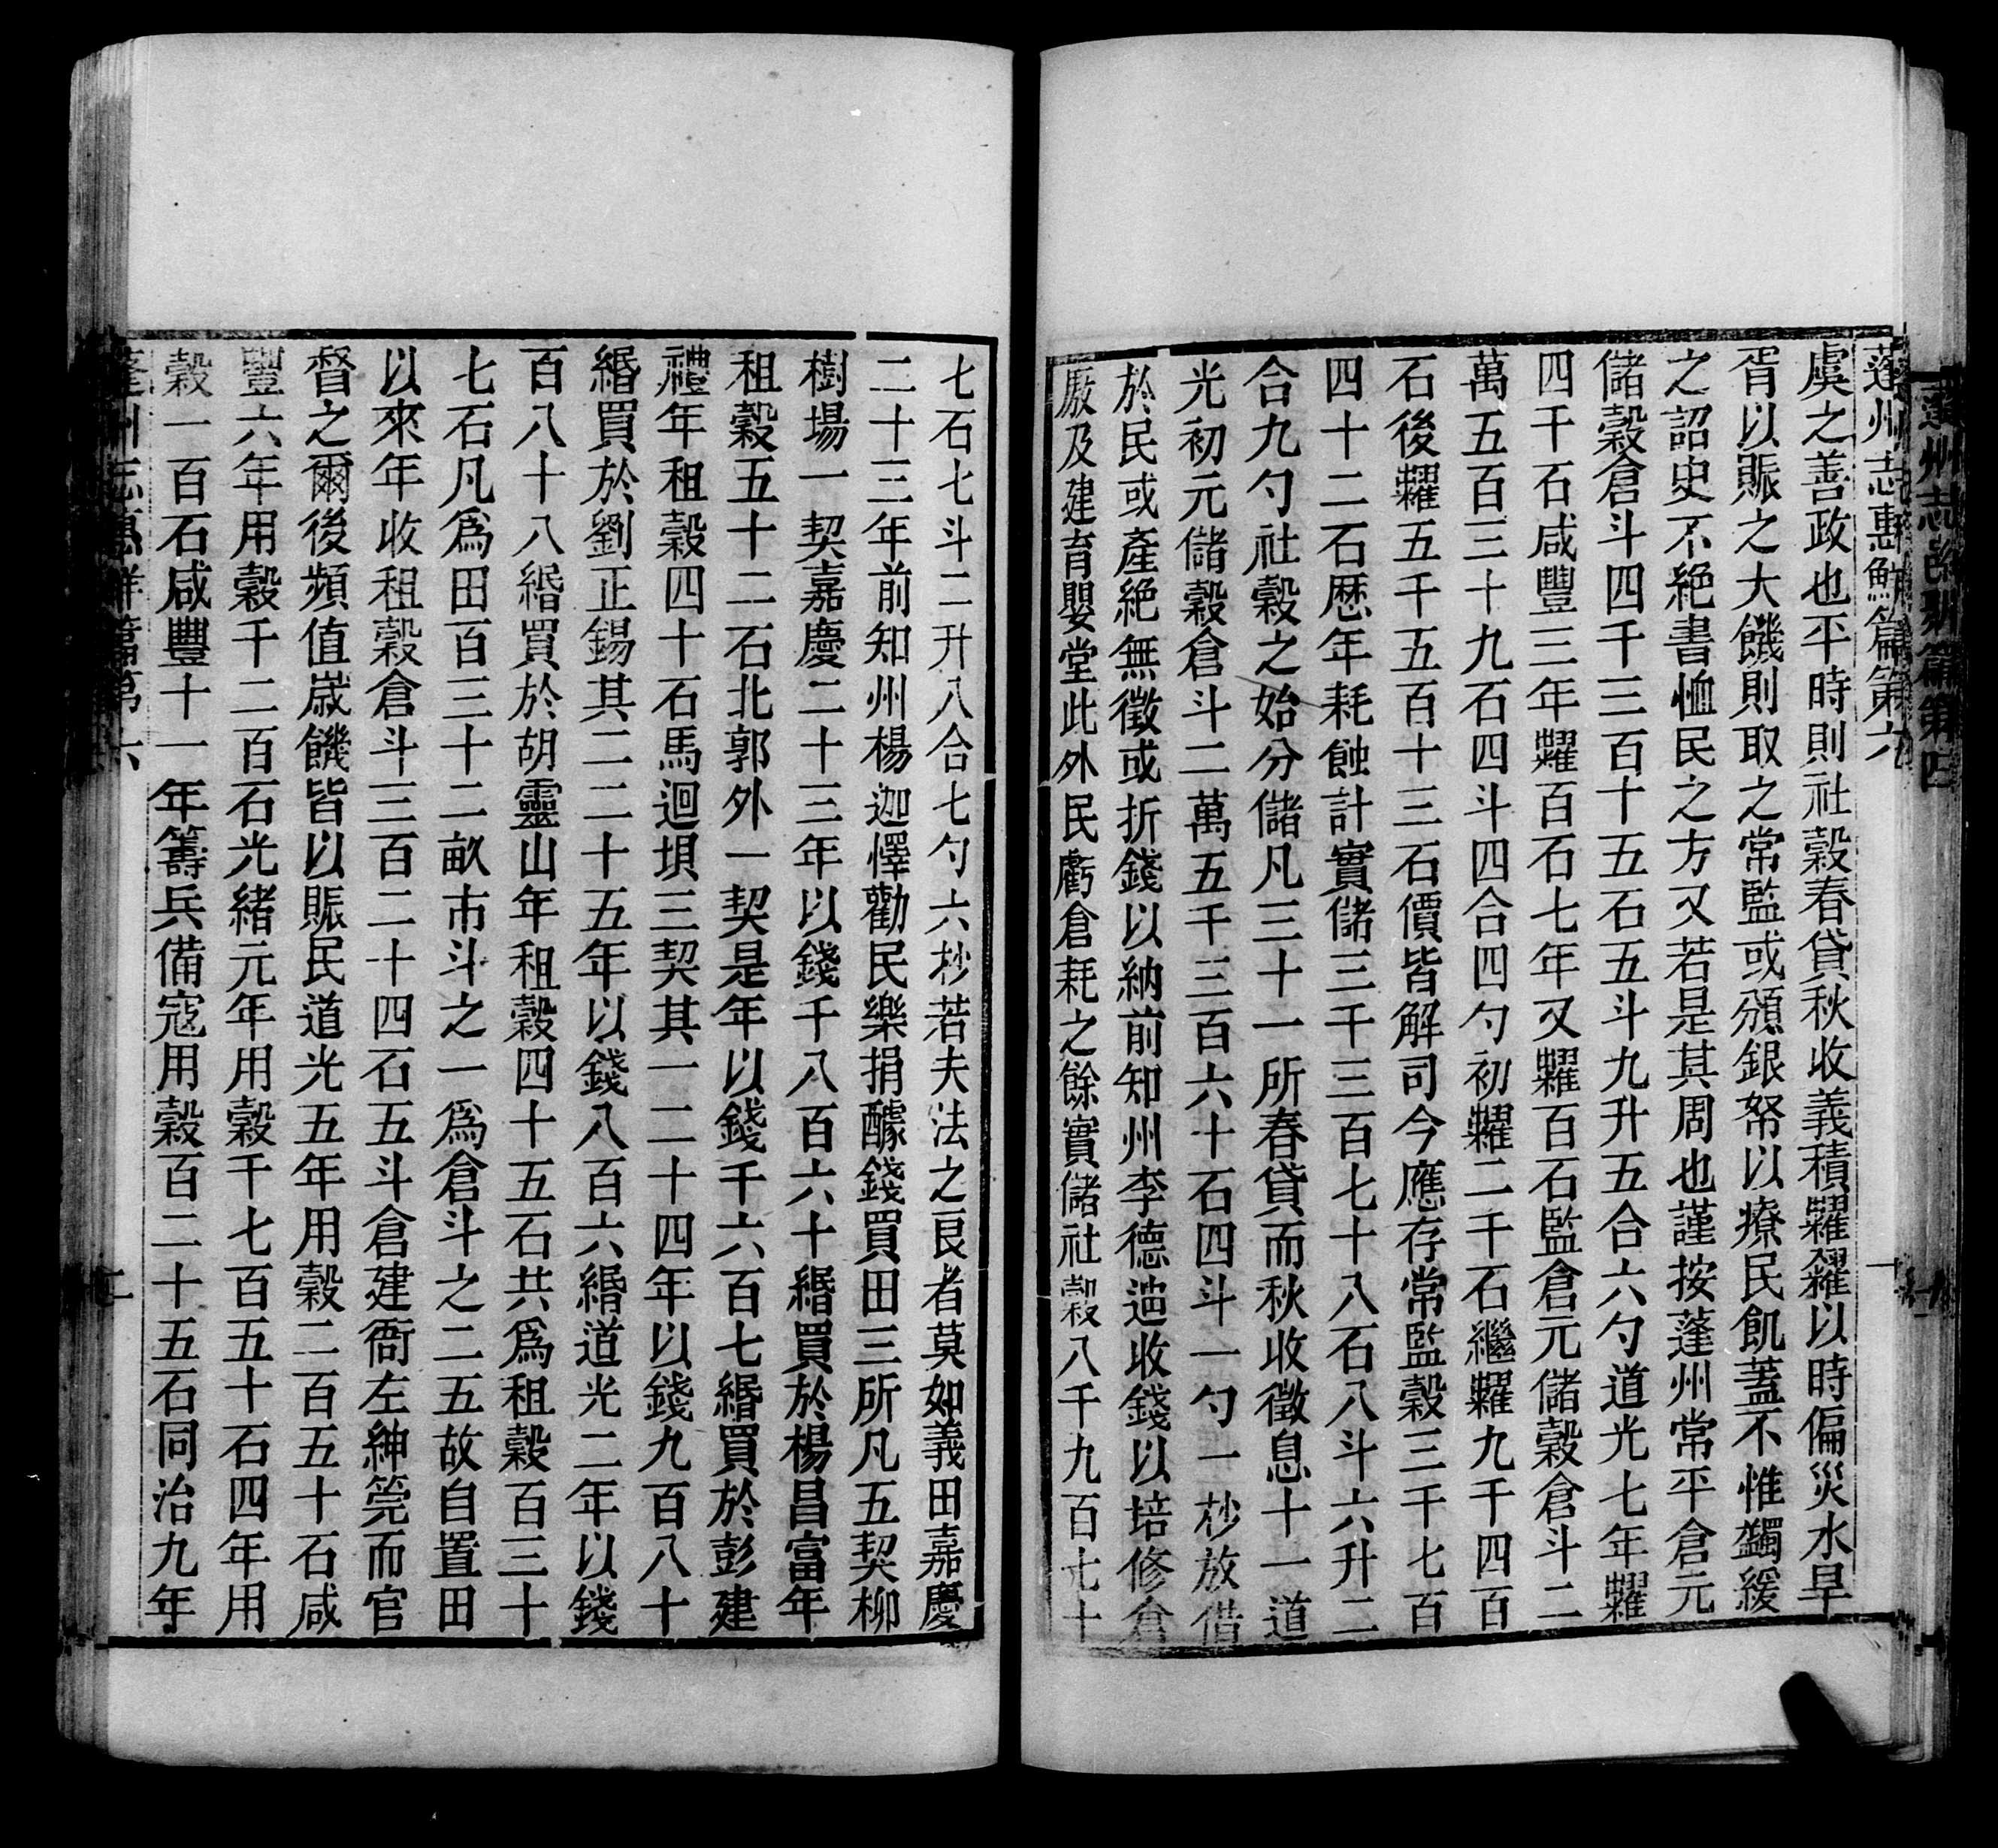 虞之善政也平時則社穀春貸秋收義積糶糴以時偏災水旱
胥以賑之大饑則取之常監或頒銀帑以療民飢蓋不惟蠲緩
之詔史不絕書恤民之方又若是其周也謹按蓬州常平倉元
儲穀倉斗四千三百十五石五斗九升五合六勺道光七年糶
四千石咸豐三年糶百石七年又糶百石監倉元儲穀倉斗二
萬五百三十九石四斗四合四勺初糶二千石繼糶九千四百
石後糶五千五百十三石價皆解司今應存常監穀三千七百
四十二石歷年耗蝕計實儲三千三百七十八石八斗六升二
合九勺社穀之始分儲凡三十一所春貸而秋收徵息十一道
光初元儲穀倉斗二萬五千三百六十石四斗一勺一杪放借
於民或產絕無徵或折錢以納前知州李德迆收錢以培修倉
廒及建育嬰堂此外民虧倉耗之餘實儲社穀八千九百七十
七石七斗二升八合七勺六杪若夫法之良者莫如義田嘉慶
二十三年前知州楊迦懌勸民樂捐醵錢買田三所凡五契柳
樹場一契嘉慶二十三年以錢千八百六十緡買於楊昌富年
租穀五十二石北郭外一契是年以錢千六百七緡買於彭建
禮年租穀四十石馬迴壩三契其一二十四年以錢九百八十
緡買於劉正錫其二二十五年以錢八百六緡道光二年以錢
百八十八緡買於胡靈山年租穀四十五石共為租穀百三十
七石凡為田百三十二畝市斗之一為倉斗之二五故自置田
以來年收租穀倉斗三百二十四石五斗倉建衙左紳筦而官
督之爾後頻值嵗饑皆以賑民道光五年用穀二百五十石咸
豐六年用穀千二百石光緒元年用穀千七百五十石四年用
穀一百石咸豐十一年籌兵備寇用穀百二十五石同治九年